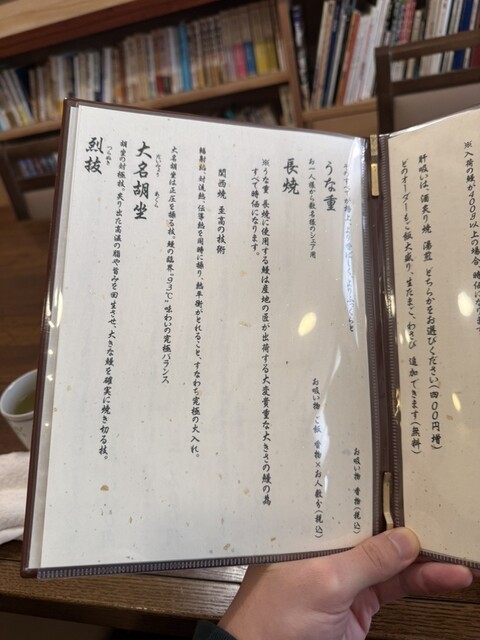 ※入荷の鰻が400g以上の場合、時価になります
肝吸いは、酒炙り焼 湯煎 どちらかをお選びください(四00円増)
どのオーダーもご飯大盛り、生たまご、わさび 追加できます(無料)
うな重
お吸い物 香物(税込)
お一人様から数名様のシェア用
長焼
お吸い物 ご飯 香物×お人数分(税込)
※うな重 長焼に使用する鰻は産地の匠が出荷する大変貴重な大きさの鰻の為
すべて時価になります。
関西焼 至高の技術
輻射熱 対流熱 伝導熱を同時に操り、熱平衡がとれること、すなわち究極の火入れ。
大名胡坐は正圧を操る技。鰻の臨界“93℃”味わいの究極バランス
だいみょう あぐら
大名胡坐
胡坐の対極技。炙り出た高温の脂や旨みを回生させ、大きな鰻を確実に焼き切る技。
つらぬき
烈抜